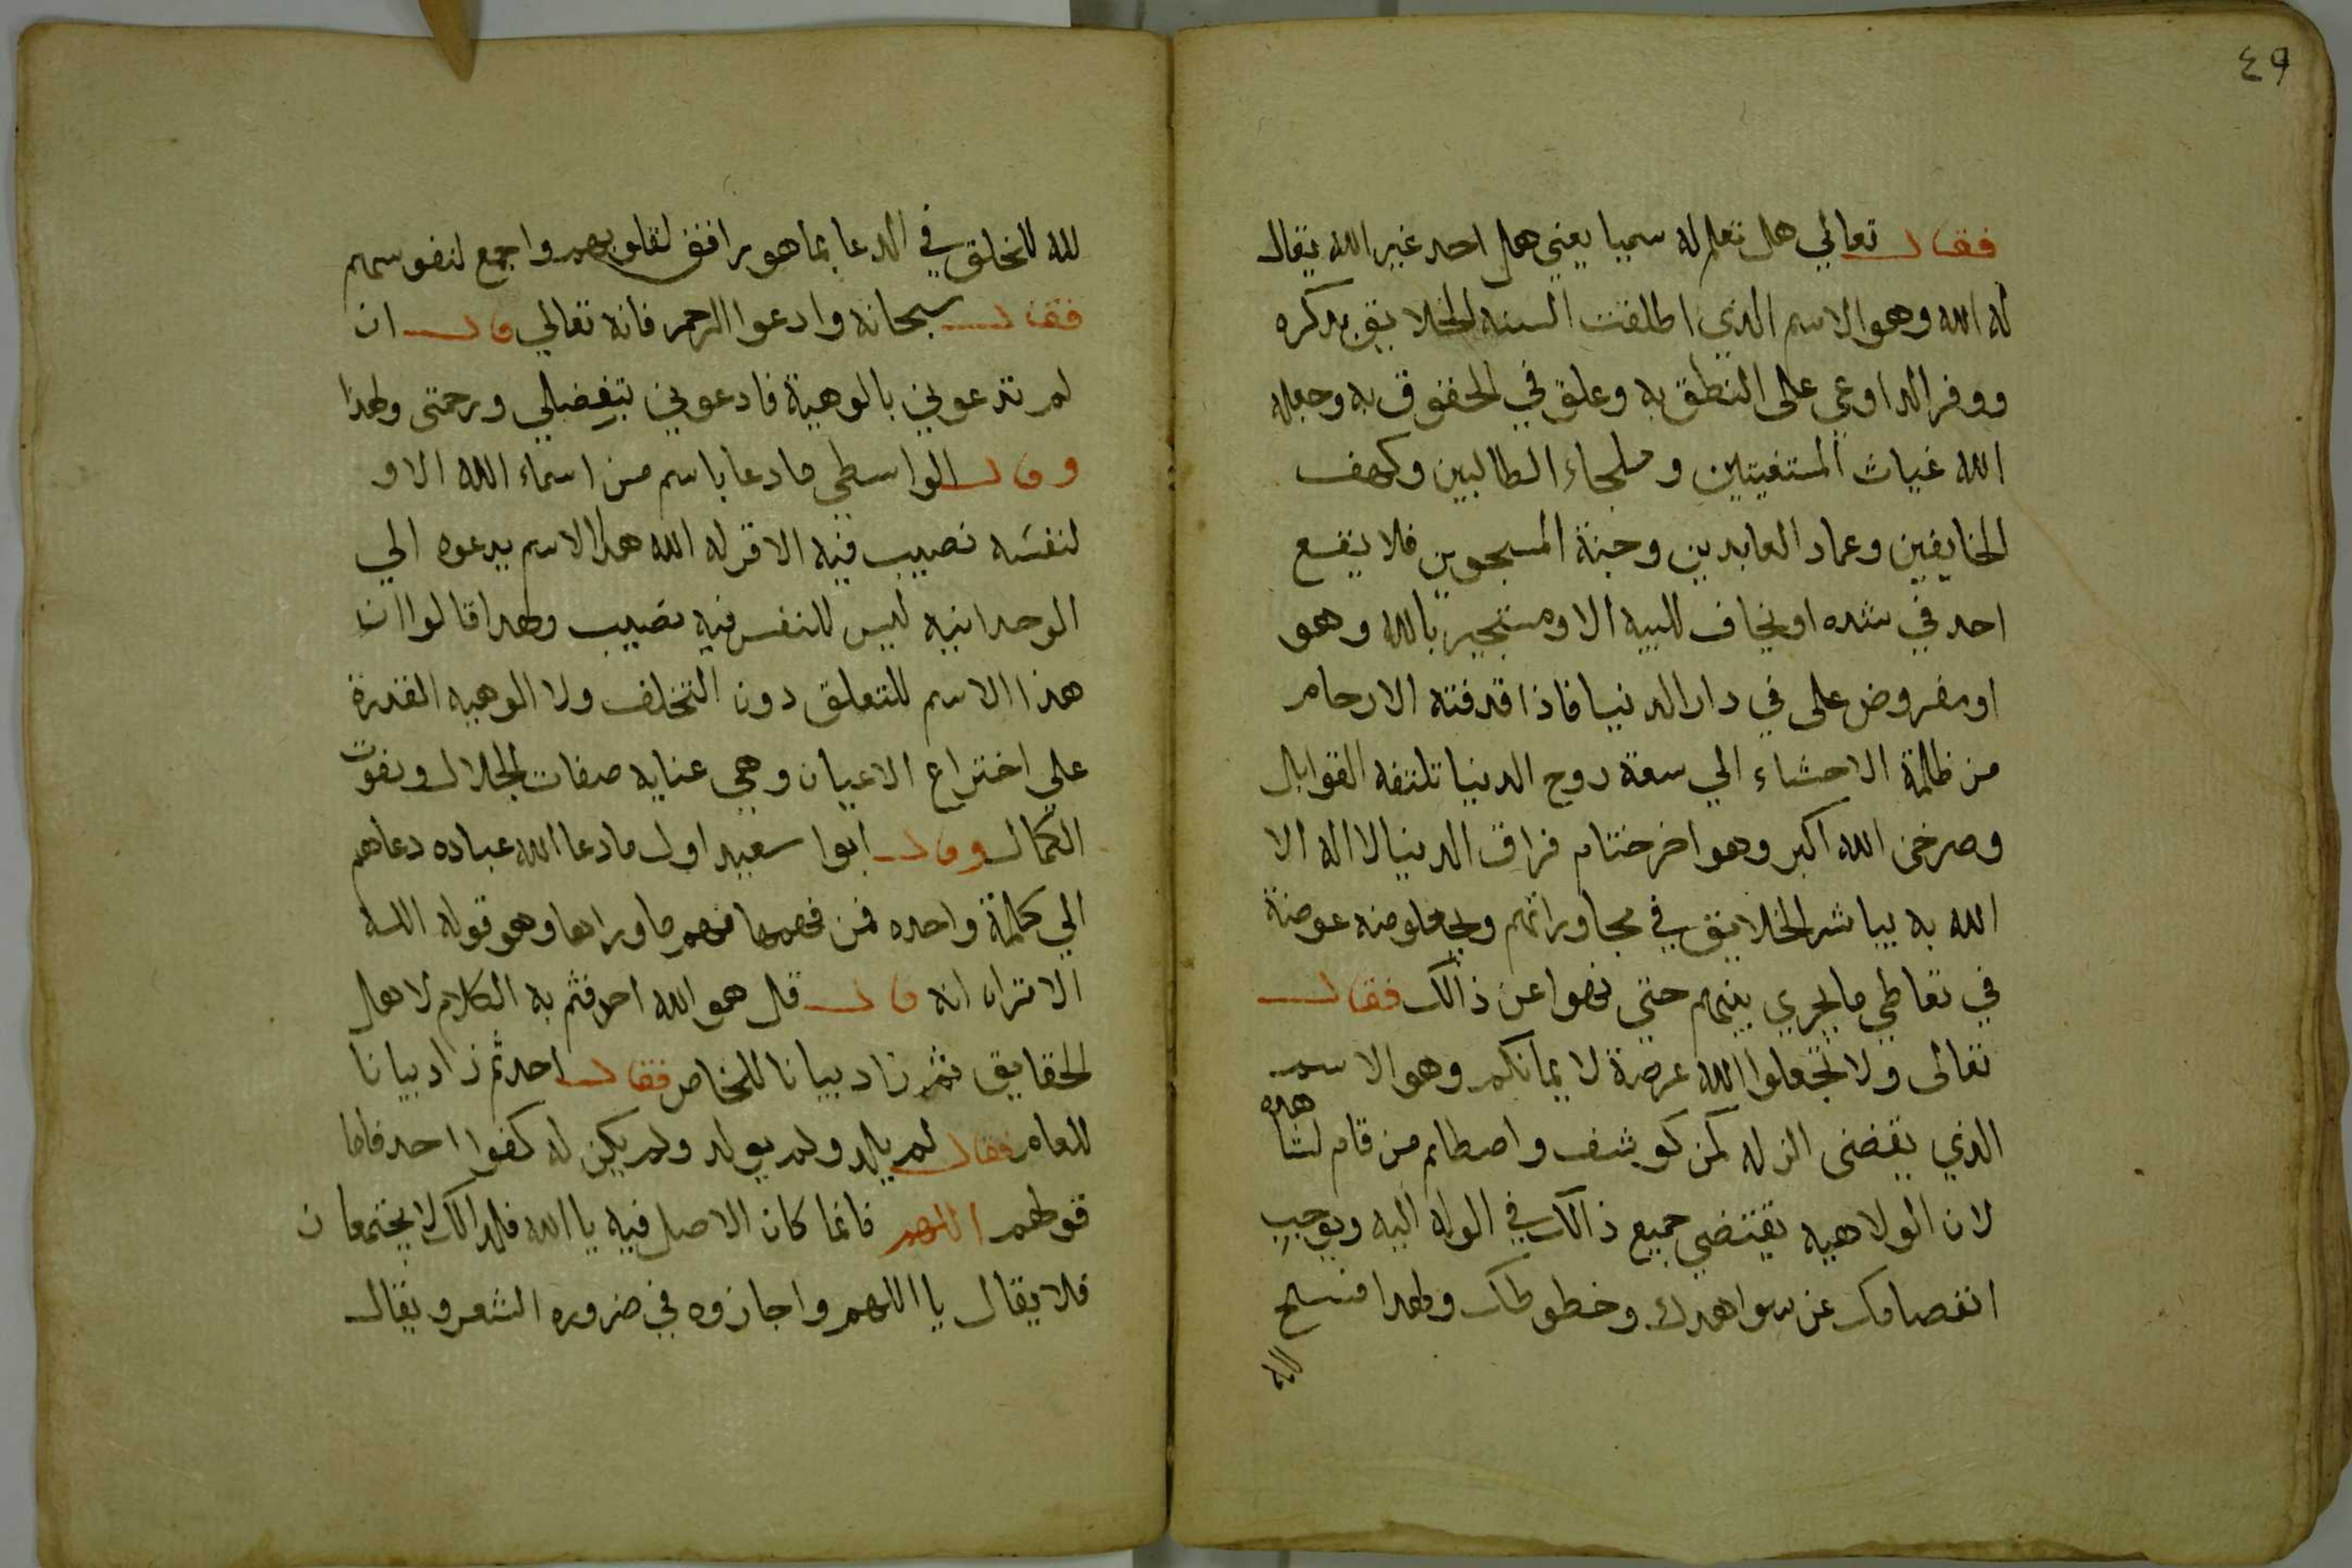 ٤٩
فقال تعالي هل تعلم له سميا يعني هل احد غير الله يقال
له الله وهو الاسم الذي اطلقت السنه الخلايق بذكره
ووفر الداوعي على النطق به وعلق في الحقوق به وجعله
الله غياث المستغيتين وملجاء الطالبين وكهف
الخايفين وعماد العابدين وجنة المسجوين فلا يقع
احد في شده او يخاف للبيه الا ومستجير بالله وهو
او مفروض على في دار الدنيا فاذا قدفته الارحام
من ظلمة الاحشاء الي سعة روح الدنيا تلتقه القوابل
وصرخن الله اكبر وهو اخر ختام فراق الدنيا لا اله الا
الله به يباشر الخلايق في مجاوراتهم ويجعلو منه عوضة
في تعاطي ما يجري بينهم حتي نهوا عن ذالك فقال
تعالى ولا تجعلوا الله عرضة لايمانكم وهو الاسم
الذي يقضى الزله لمن كوشف واصطلم من قام لشاهده
لان الولاهيه تقتضي جميع ذالك في الوله اليه ويوجب
انفصامك عن سواهدك وخطوطك ولهدا فسح
الله
لله للخلق في الدعا بما هو برافق لقلوبهم واجمع لنفوسهم
فقال سبحانه وادعوا الرحمن فانه تعالي قال ان
لم تدعوني بالوهية فادعوني بتفضلي ورحمتى ولهذا
وقال الواسطي ما دعا باسم من اسماء الله الا و
لنفسه نصيب فيه الا قوله الله هذا الاسم يدعوه الي
الوحدانيه ليس للنفس فيه نصيب ولهدا قالوا ان
هذا الاسم للتعلق دون التخلف ولا الوهيه القدرة
علي اختراع الاعيان وهي عنايه صفات الجلال ونعوت
الكمال وقال ابوا سعيد اول ما دعا الله عباده دعاهم
الي كلمة واحده فمن فهمها فهم ما وراها وهو قوله الله
الا تراه انه قال قل هو الله احد فتم به الكلام لاهل
الحقايق ثم زاد بيانا للخاص فقال احد ثم زاد بيانا
للعام فقال لم يلد ولم يولد ولم يكن له كفوا احد فاما
قولهم اللهم فانما كان الاصل فيه يا الله فلدالك لا يجتمعان
فلا يقال يا اللهم واجازوه في ضروره الشعر ويقال